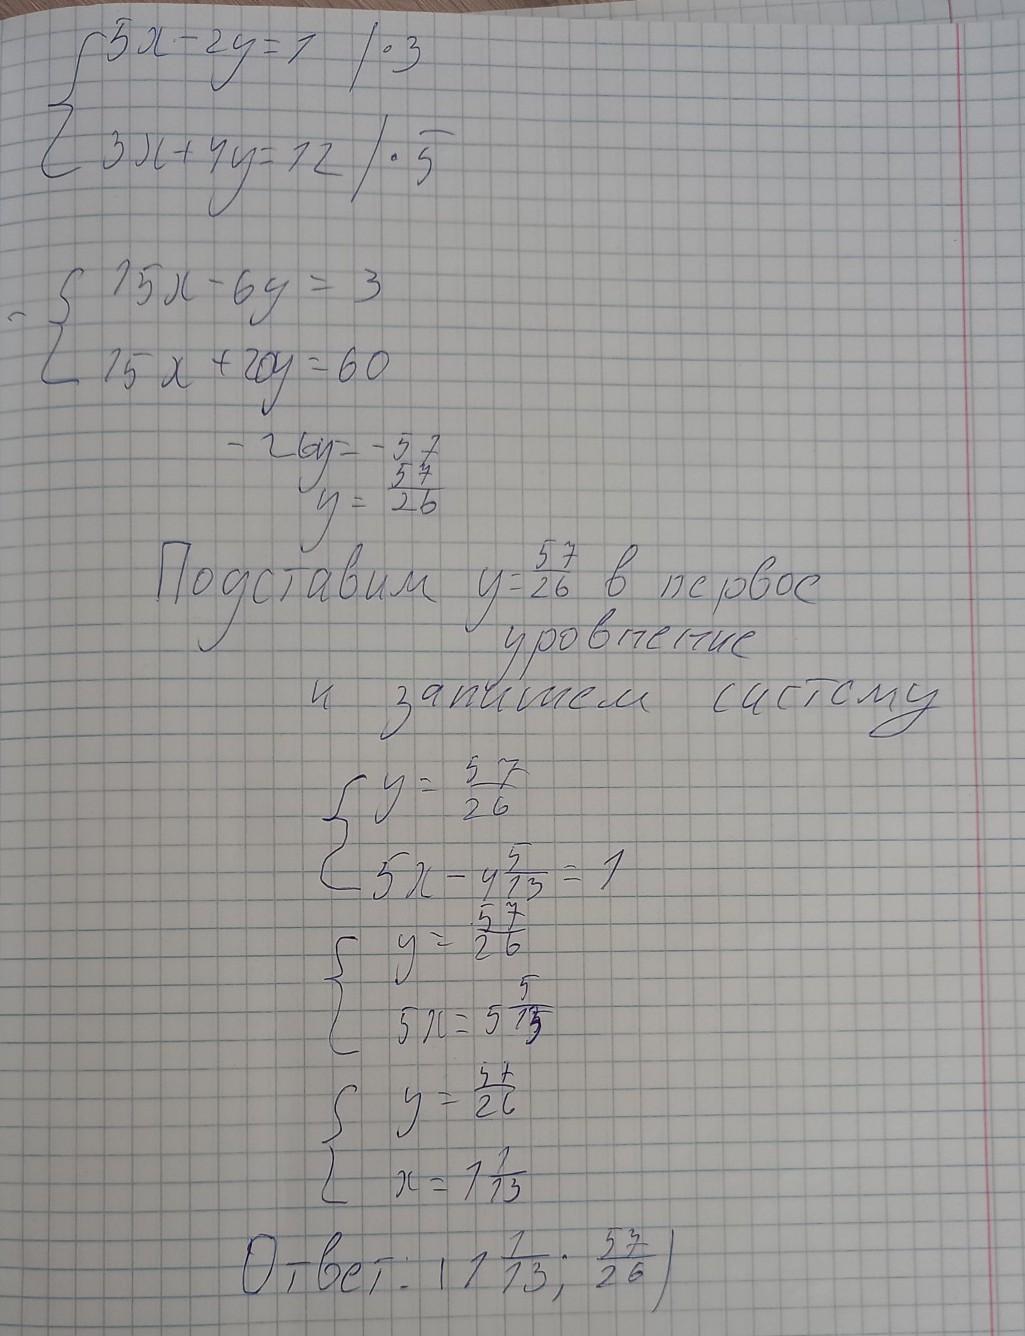 5x - 2y = 1 | · 3
3x + 4y = 12 | · 5
- 15x - 6y = 3
15x + 20y = 60
- 26y = - 57
y = 57/26
Подставим y = 57/26 в первое
уровнение
и запишем систему
y = 57/26
5x - 4 5/13 = 1
y = 57/26
5x = 5 5/13
y = 57/26
x = 1 1/13
Ответ: (1 1/13; 57/26)